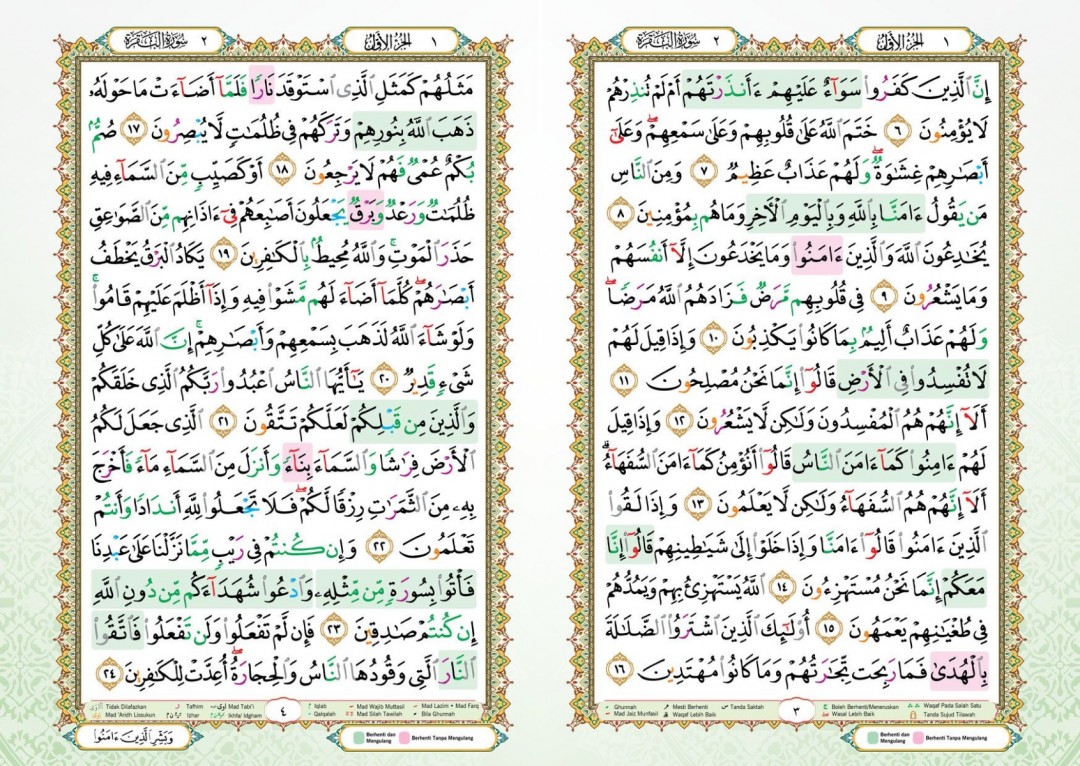 ١ الجزء الأول
٢ سورة البقرة
إِنَّ ٱلَّذِينَ كَفَرُوا۟ سَوَآءٌ عَلَيْهِمْ ءَأَنذَرْتَهُمْ أَمْ لَمْ تُنذِرْهُمْ
لَا يُؤْمِنُونَ ٦ خَتَمَ ٱللَّهُ عَلَىٰ قُلُوبِهِمْ وَعَلَىٰ سَمْعِهِمْ ۖ وَعَلَىٰٓ
أَبْصَٰرِهِمْ غِشَٰوَةٌ ۖ وَلَهُمْ عَذَابٌ عَظِيمٌ ٧ وَمِنَ ٱلنَّاسِ
مَن يَقُولُ ءَامَنَّا بِٱللَّهِ وَبِٱلْيَوْمِ ٱلْءَاخِرِ وَمَا هُم بِمُؤْمِنِينَ ٨
يُخَٰدِعُونَ ٱللَّهَ وَٱلَّذِينَ ءَامَنُوا۟ وَمَا يَخْدَعُونَ إِلَّآ أَنفُسَهُمْ
وَمَا يَشْعُرُونَ ٩ فِى قُلُوبِهِم مَّرَضٌ فَزَادَهُمُ ٱللَّهُ مَرَضًا ۖ
وَلَهُمْ عَذَابٌ أَلِيمٌۢ بِمَا كَانُوا۟ يَكْذِبُونَ ١٠ وَإِذَا قِيلَ لَهُمْ
لَا تُفْسِدُوا۟ فِى ٱلْأَرْضِ قَالُوٓا۟ إِنَّمَا نَحْنُ مُصْلِحُونَ ١١
أَلَآ إِنَّهُمْ هُمُ ٱلْمُفْسِدُونَ وَلَٰكِن لَّا يَشْعُرُونَ ١٢ وَإِذَا قِيلَ
لَهُمْ ءَامِنُوا۟ كَمَآ ءَامَنَ ٱلنَّاسُ قَالُوٓا۟ أَنُؤْمِنُ كَمَآ ءَامَنَ ٱلسُّفَهَآءُ ۗ
أَلَآ إِنَّهُمْ هُمُ ٱلسُّفَهَآءُ وَلَٰكِن لَّا يَعْلَمُونَ ١٣ وَإِذَا لَقُوا۟
ٱلَّذِينَ ءَامَنُوا۟ قَالُوٓا۟ ءَامَنَّا وَإِذَا خَلَوْا۟ إِلَىٰ شَيَٰطِينِهِمْ قَالُوٓا۟ إِنَّا
مَعَكُمْ إِنَّمَا نَحْنُ مُسْتَهْزِءُونَ ١٤ ٱللَّهُ يَسْتَهْزِئُ بِهِمْ وَيَمُدُّهُمْ
فِى طُغْيَٰنِهِمْ يَعْمَهُونَ ١٥ أُو۟لَٰٓئِكَ ٱلَّذِينَ ٱشْتَرَوُا۟ ٱلضَّلَٰلَةَ
بِٱلْهُدَىٰ فَمَا رَبِحَت تِّجَٰرَتُهُمْ وَمَا كَانُوا۟ مُهْتَدِينَ ١٦
٣
Ghunnah Mesti Berhenti Tanda Saktah Boleh Berhenti/Meneruskan Waqaf Pada Salah Satu
Mad Jaiz Munfasil Waqaf Lebih Baik Wasal Lebih Baik Tanda Sujud Tilawah
Berhenti dan Mengulang Berhenti Tanpa Mengulang
١ الجزء الأول
٢ سورة البقرة
مَثَلُهُمْ كَمَثَلِ ٱلَّذِى ٱسْتَوْقَدَ نَارًا فَلَمَّآ أَضَآءَتْ مَا حَوْلَهُۥ
ذَهَبَ ٱللَّهُ بِنُورِهِمْ وَتَرَكَهُمْ فِى ظُلُمَٰتٍ لَّا يُبْصِرُونَ ١٧ صُمٌّۢ
بُكْمٌ عُمْىٌ فَهُمْ لَا يَرْجِعُونَ ١٨ أَوْ كَصَيِّبٍ مِّنَ ٱلسَّمَآءِ فِيهِ
ظُلُمَٰتٌ وَرَعْدٌ وَبَرْقٌ يَجْعَلُونَ أَصَٰبِعَهُمْ فِىٓ ءَاذَانِهِم مِّنَ ٱلصَّوَٰعِقِ
حَذَرَ ٱلْمَوْتِ ۚ وَٱللَّهُ مُحِيطٌۢ بِٱلْكَٰفِرِينَ ١٩ يَكَادُ ٱلْبَرْقُ يَخْطَفُ
أَبْصَٰرَهُمْ ۖ كُلَّمَآ أَضَآءَ لَهُم مَّشَوْا۟ فِيهِ وَإِذَآ أَظْلَمَ عَلَيْهِمْ قَامُوا۟ ۚ
وَلَوْ شَآءَ ٱللَّهُ لَذَهَبَ بِسَمْعِهِمْ وَأَبْصَٰرِهِمْ ۚ إِنَّ ٱللَّهَ عَلَىٰ كُلِّ
شَىْءٍ قَدِيرٌ ٢٠ يَٰٓأَيُّهَا ٱلنَّاسُ ٱعْبُدُوا۟ رَبَّكُمُ ٱلَّذِى خَلَقَكُمْ
وَٱلَّذِينَ مِن قَبْلِكُمْ لَعَلَّكُمْ تَتَّقُونَ ٢١ ٱلَّذِى جَعَلَ لَكُمُ
ٱلْأَرْضَ فِرَٰشًا وَٱلسَّمَآءَ بِنَآءً وَأَنزَلَ مِنَ ٱلسَّمَآءِ مَآءً فَأَخْرَجَ
بِهِۦ مِنَ ٱلثَّمَرَٰتِ رِزْقًا لَّكُمْ ۖ فَلَا تَجْعَلُوا۟ لِلَّهِ أَندَادًا وَأَنتُمْ
تَعْلَمُونَ ٢٢ وَإِن كُنتُمْ فِى رَيْبٍ مِّمَّا نَزَّلْنَا عَلَىٰ عَبْدِنَا
فَأْتُوا۟ بِسُورَةٍ مِّن مِّثْلِهِۦ وَٱدْعُوا۟ شُهَدَآءَكُم مِّن دُونِ ٱللَّهِ
إِن كُنتُمْ صَٰدِقِينَ ٢٣ فَإِن لَّمْ تَفْعَلُوا۟ وَلَن تَفْعَلُوا۟ فَٱتَّقُوا۟
ٱلنَّارَ ٱلَّتِى وَقُودُهَا ٱلنَّاسُ وَٱلْحِجَارَةُ ۖ أُعِدَّتْ لِلْكَٰفِرِينَ ٢٤
٤
Tidak Dilafazkan Tafhim Mad Tabi'i Iqlab Mad Wajib Muttasil Mad Lazim Mad Farq
Mad 'Aridh Lissukun Izhar Ikhfa/ Idgham Qalqalah Mad Silah Tawilah Bila Ghunnah
Berhenti dan Mengulang Berhenti Tanpa Mengulang
وَبَشِّرِ ٱلَّذِينَ ءَامَنُوا۟